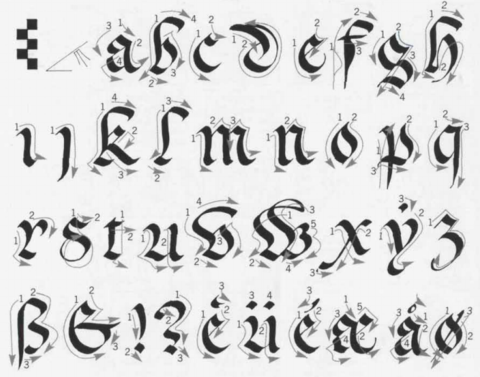 a b c d e f g h
ı ȷ k l m n o p q
r s t u v w x ẏ z
ß & ! ? ê ü é æ å ø